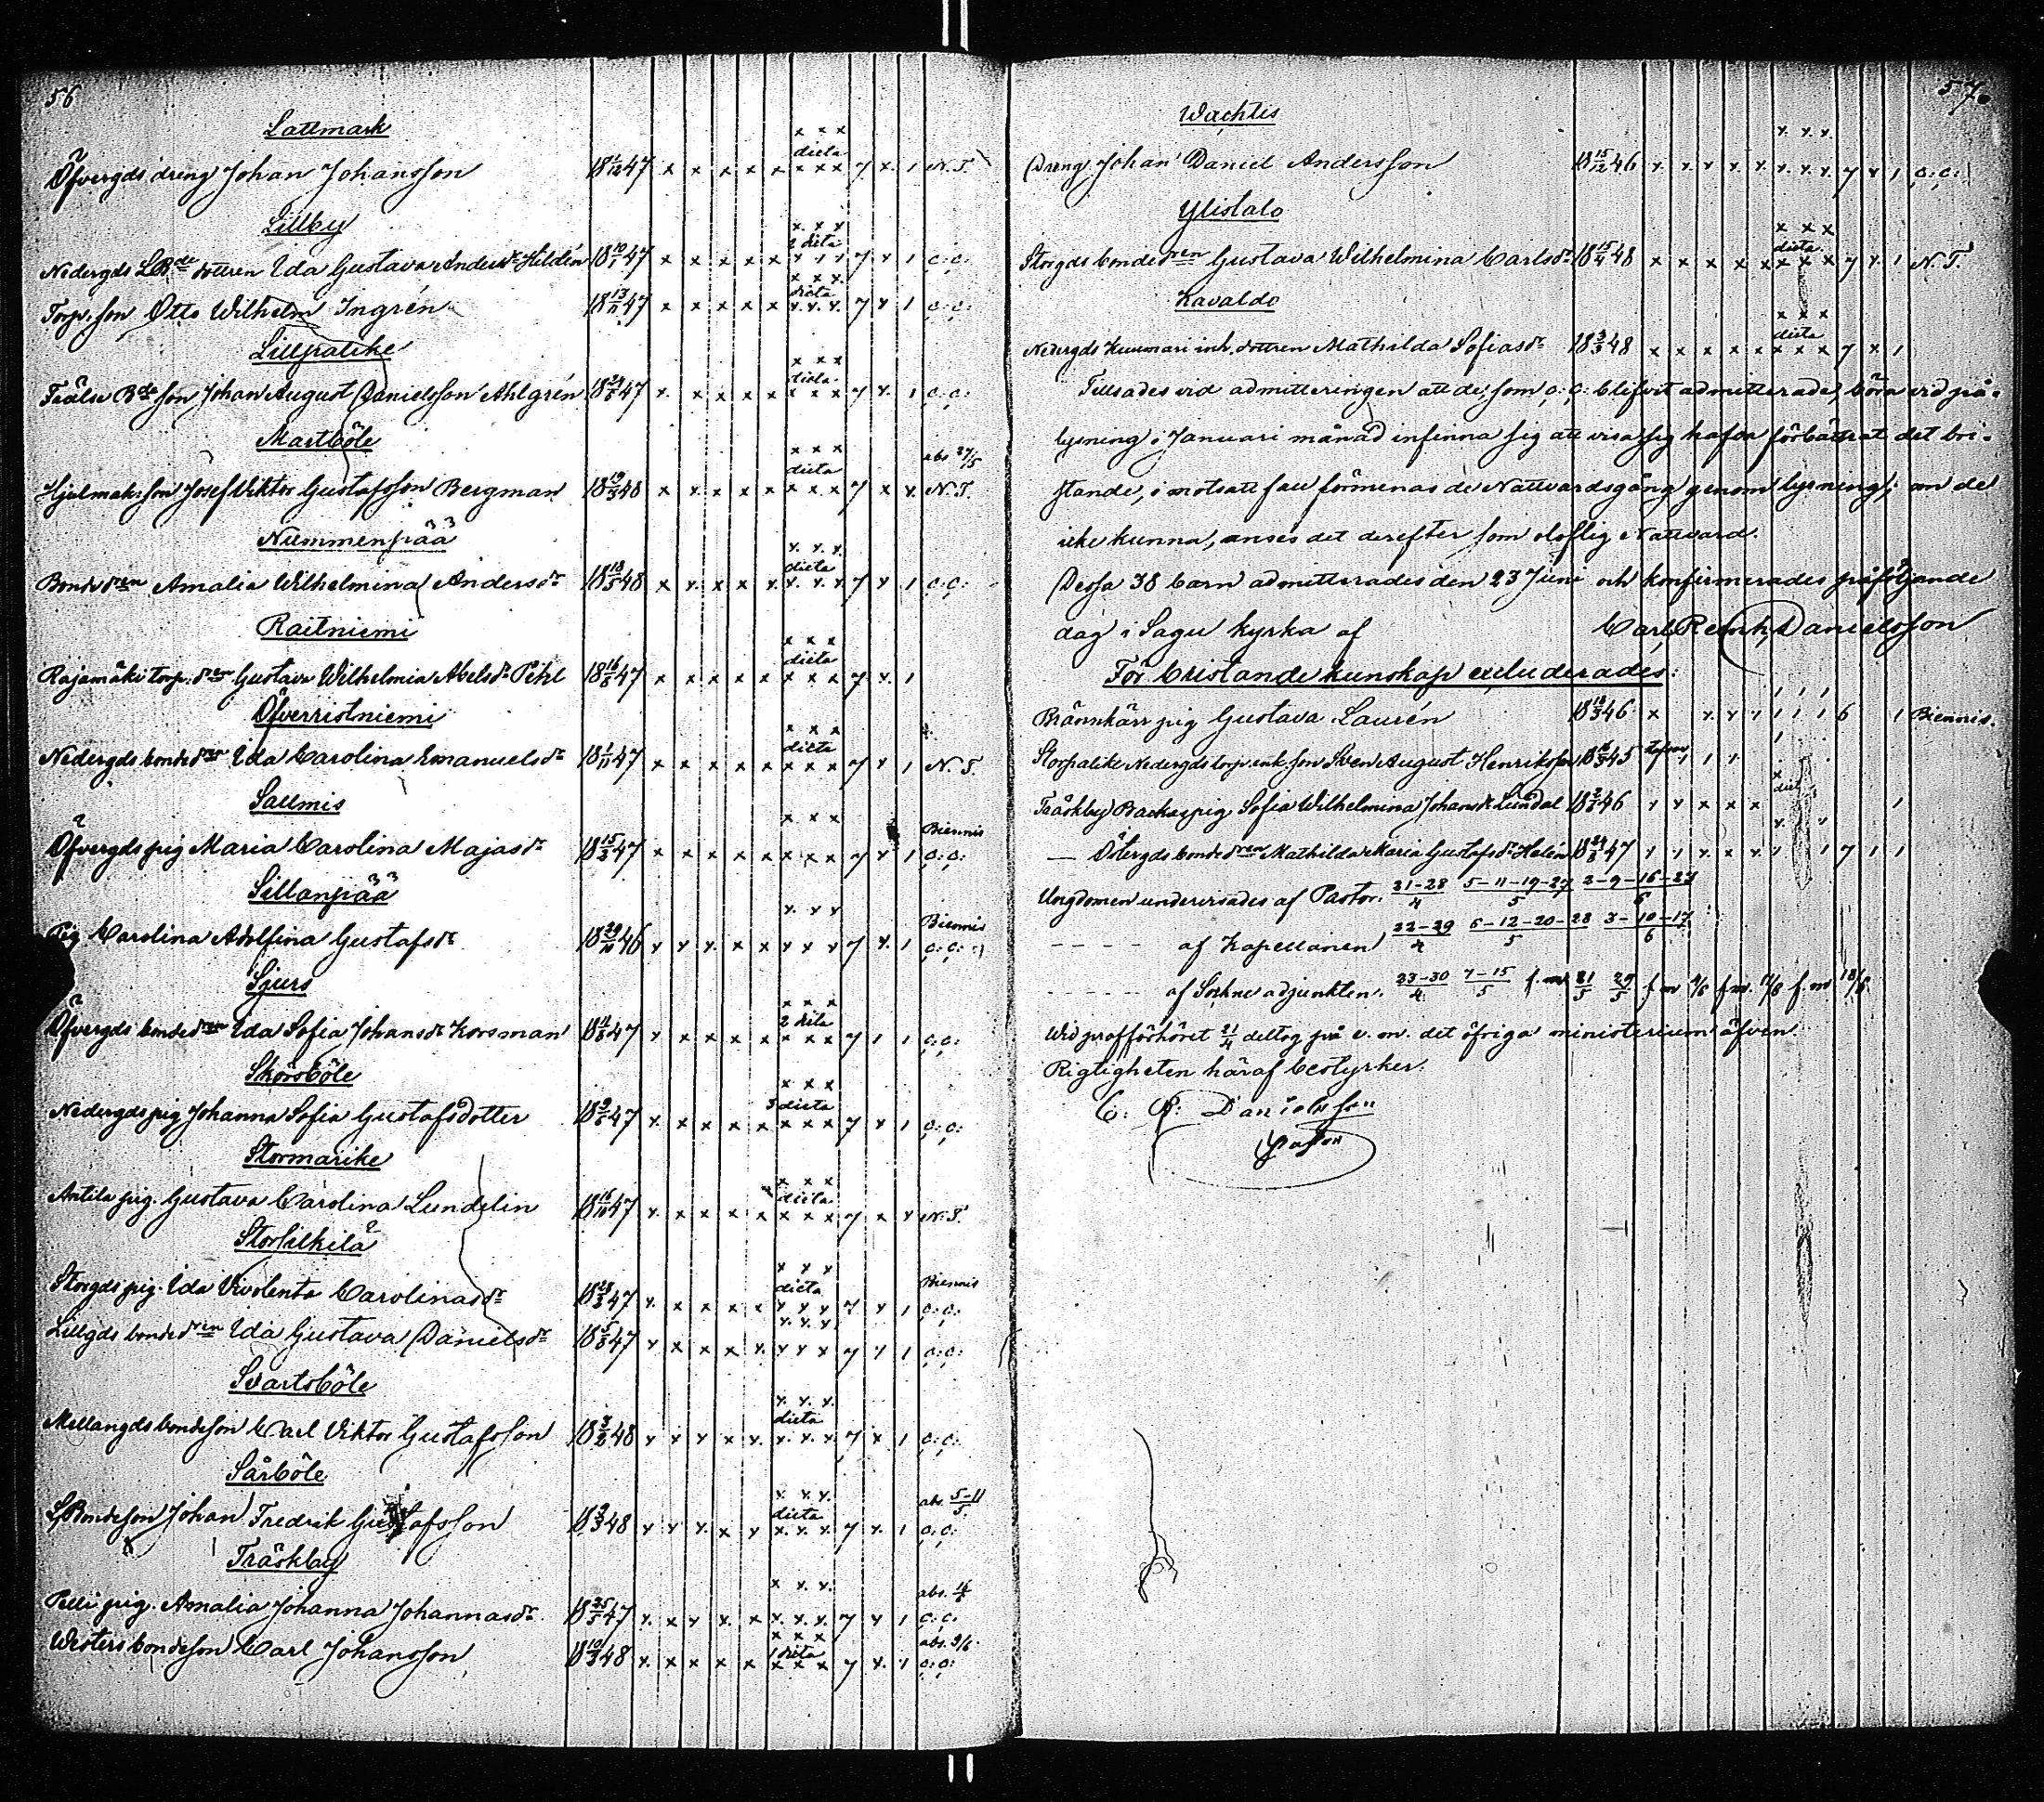 56
Lattmark
x x x
dicta
Öfvergds dreng Johan Johansson 18 1/12 47 x x x x x x x x 7 x 1 N. T.
Lillby
x x x
2 dicta
Nedergds LBde dottren Ida Gustava Andersdr Hildén 18 10/1 47 x x x x x x x x 7 x 1 C: C:
x x x
dicta
Torp. son Otto Wilhelm Ingrén 18 13/11 47 x x x x x x x x 7 x 1 C: C:
Lillpalike
x x x
dicta
Frälse Bde son Johan August Danielsson Ahlgrén 47 x x x x x x x x 7 x 1 C: C:
Martböle
x x x
dicta abs 27/5
Hjulmak: son Josef Viktor Gustafsson Bergman 18 19/3 48 x x x x x x x x 7 x x N. T.
Nummenpää
x x x
dicta
Bonde dren Amalia Wilhelmina Andersdr 18 18/5 48 x x x x x x x x 7 x 1 C: C:
Raitniemi
x x x
dicta
Rajamäki torp. dren Gustava Wilhelmia Abelsdr Pihl 18 16/8 47 x x x x x x x x 7 x 1
Öfverristniemi
x x x
dicta
Nedergds bonde dren Ida Carolina Emanuelsdr 18 1/11 47 x x x x x x x x 7 x 1 N. T.
Sallmis
x x x Biennis
Öfvergds pig Maria Carolina Majasdr 18 15/3 47 x x x x x x x x 7 x 1 C: C:
Sillanpää
x x x Biennis
Pig Carolina Adolfina Gustafsdr 18 29/10 46 x x x x x x x x 7 x 1 C: C:
Sjurs
x x x
2 dicta
Öfvergds bonde dren Ida Sofia Johansdr Korsman 18 11/8 47 x x x x x x x x 7 1 1 C: C:
Skörsböle
x x x
3 dicta
Nedergds pig Johanna Sofia Gustafsdotter 18 9/6 47 x x x x x x x x 7 x 1 C: C:
Stormarike
x x x
dicta
Antila pig. Gustava Carolina Lundelin 18 16/10 47 x x x x x x x x 7 x x N. T.
Storsilkilä
x x x
dicta Biennis
Storgds pig. Ida Vivolenta Carolinasdr 18 28/3 47 x x x x x x x x 7 x 1 C: C:
x x x
Lillgds bonde dren Ida Gustava Danielsdr 18 5/8 47 x x x x x x x x 7 x 1 C: C:
Svartsböle
x x x
dicta
Mellangds bondeson Carl Viktor Gustafsson 48 x x x x x x x x 7 x 1 C: C:
Särböle
x x x
dicta abs. 5-11/5
LBondeson Johan Fredrik Gustafsson 18 9/3 48 x x x x x x x x 7 x 1 C: C:
Träskby
x x x abs.
Pelli pig. Amalia Johanna Johannasdr 18 25/5 47 x x x x x x x x 7 x 1 C: C:
x x x
1 dicta abs. 9/6
Westers bondeson Carl Johansson 18 10/3 48 x x x x x x x x 7 x 1 C: C:
57.
Wachtis
x x x
Dreng Johan Daniel Andersson 18 15/12 46 x x x x x x x x 7 x 1 C: C:
Ylistalo
x x x
dicta
Storgds bonde dren Gustava Wilhelmina Carlsdr 18 15/4 48 x x x x x x x x 7 x 1 N. T.
Kavaldo
x x x
dicta
Nedergds Kuumari inh. dottren Mathilda Sofiasdr 18 3/3 48 x x x x x x x x 7 x 1
Tillsades vid admitteringen att de, som C: C: blifvit admitterade, böra vid på-
lysning i Januari månad infinna sig att visa sig hafva förbättrat det bri-
stande, i motsatt fall förmenas de Nattvardsgång genom lysning; om de
icke kunna, anses det derefter som oloflig Nattvard.
Dessa 38 barn admitterades den 23 Juni och konfirmerades påföljande
dag i Sagu Kyrka af Carl Reinh. Danielsson
För bristande kunskap excluderades:
1 1 1
Brännkärr pig Gustava Laurén 18 18/3 46 x x x x 1 1 1 6 1 Biennis.
Storpalike Nedergds torp. enk. son Sven August Henriksson 45 1 1 x
x
Träskby Backas pig Sofia Wilhelmina Johansdr Lundal 46 x x x x x 1
— Östergds bonde dren Mathilda Maria Gustafsdr Helén 47 x x x x x 1 1 7 1 1
Ungdomen undervisades af Pastor. 21-28/4 5-11-19-27/5 2-9-16-23/6
---- af Kapellanen 22-29/4 6-12-20-28/5 3-10-17/6
---- af Sockne adjunkten. 23-30/4 7-15/5 f. m 21/5 29/5 f m 4/6 f m. 11/6 f. m 18/6
Wid profförhöret 21/4 deltog på e. m. det öfriga ministerium äfven.
Rigtigheten häraf bestyrker.
C: R: Danielsson
Pastor